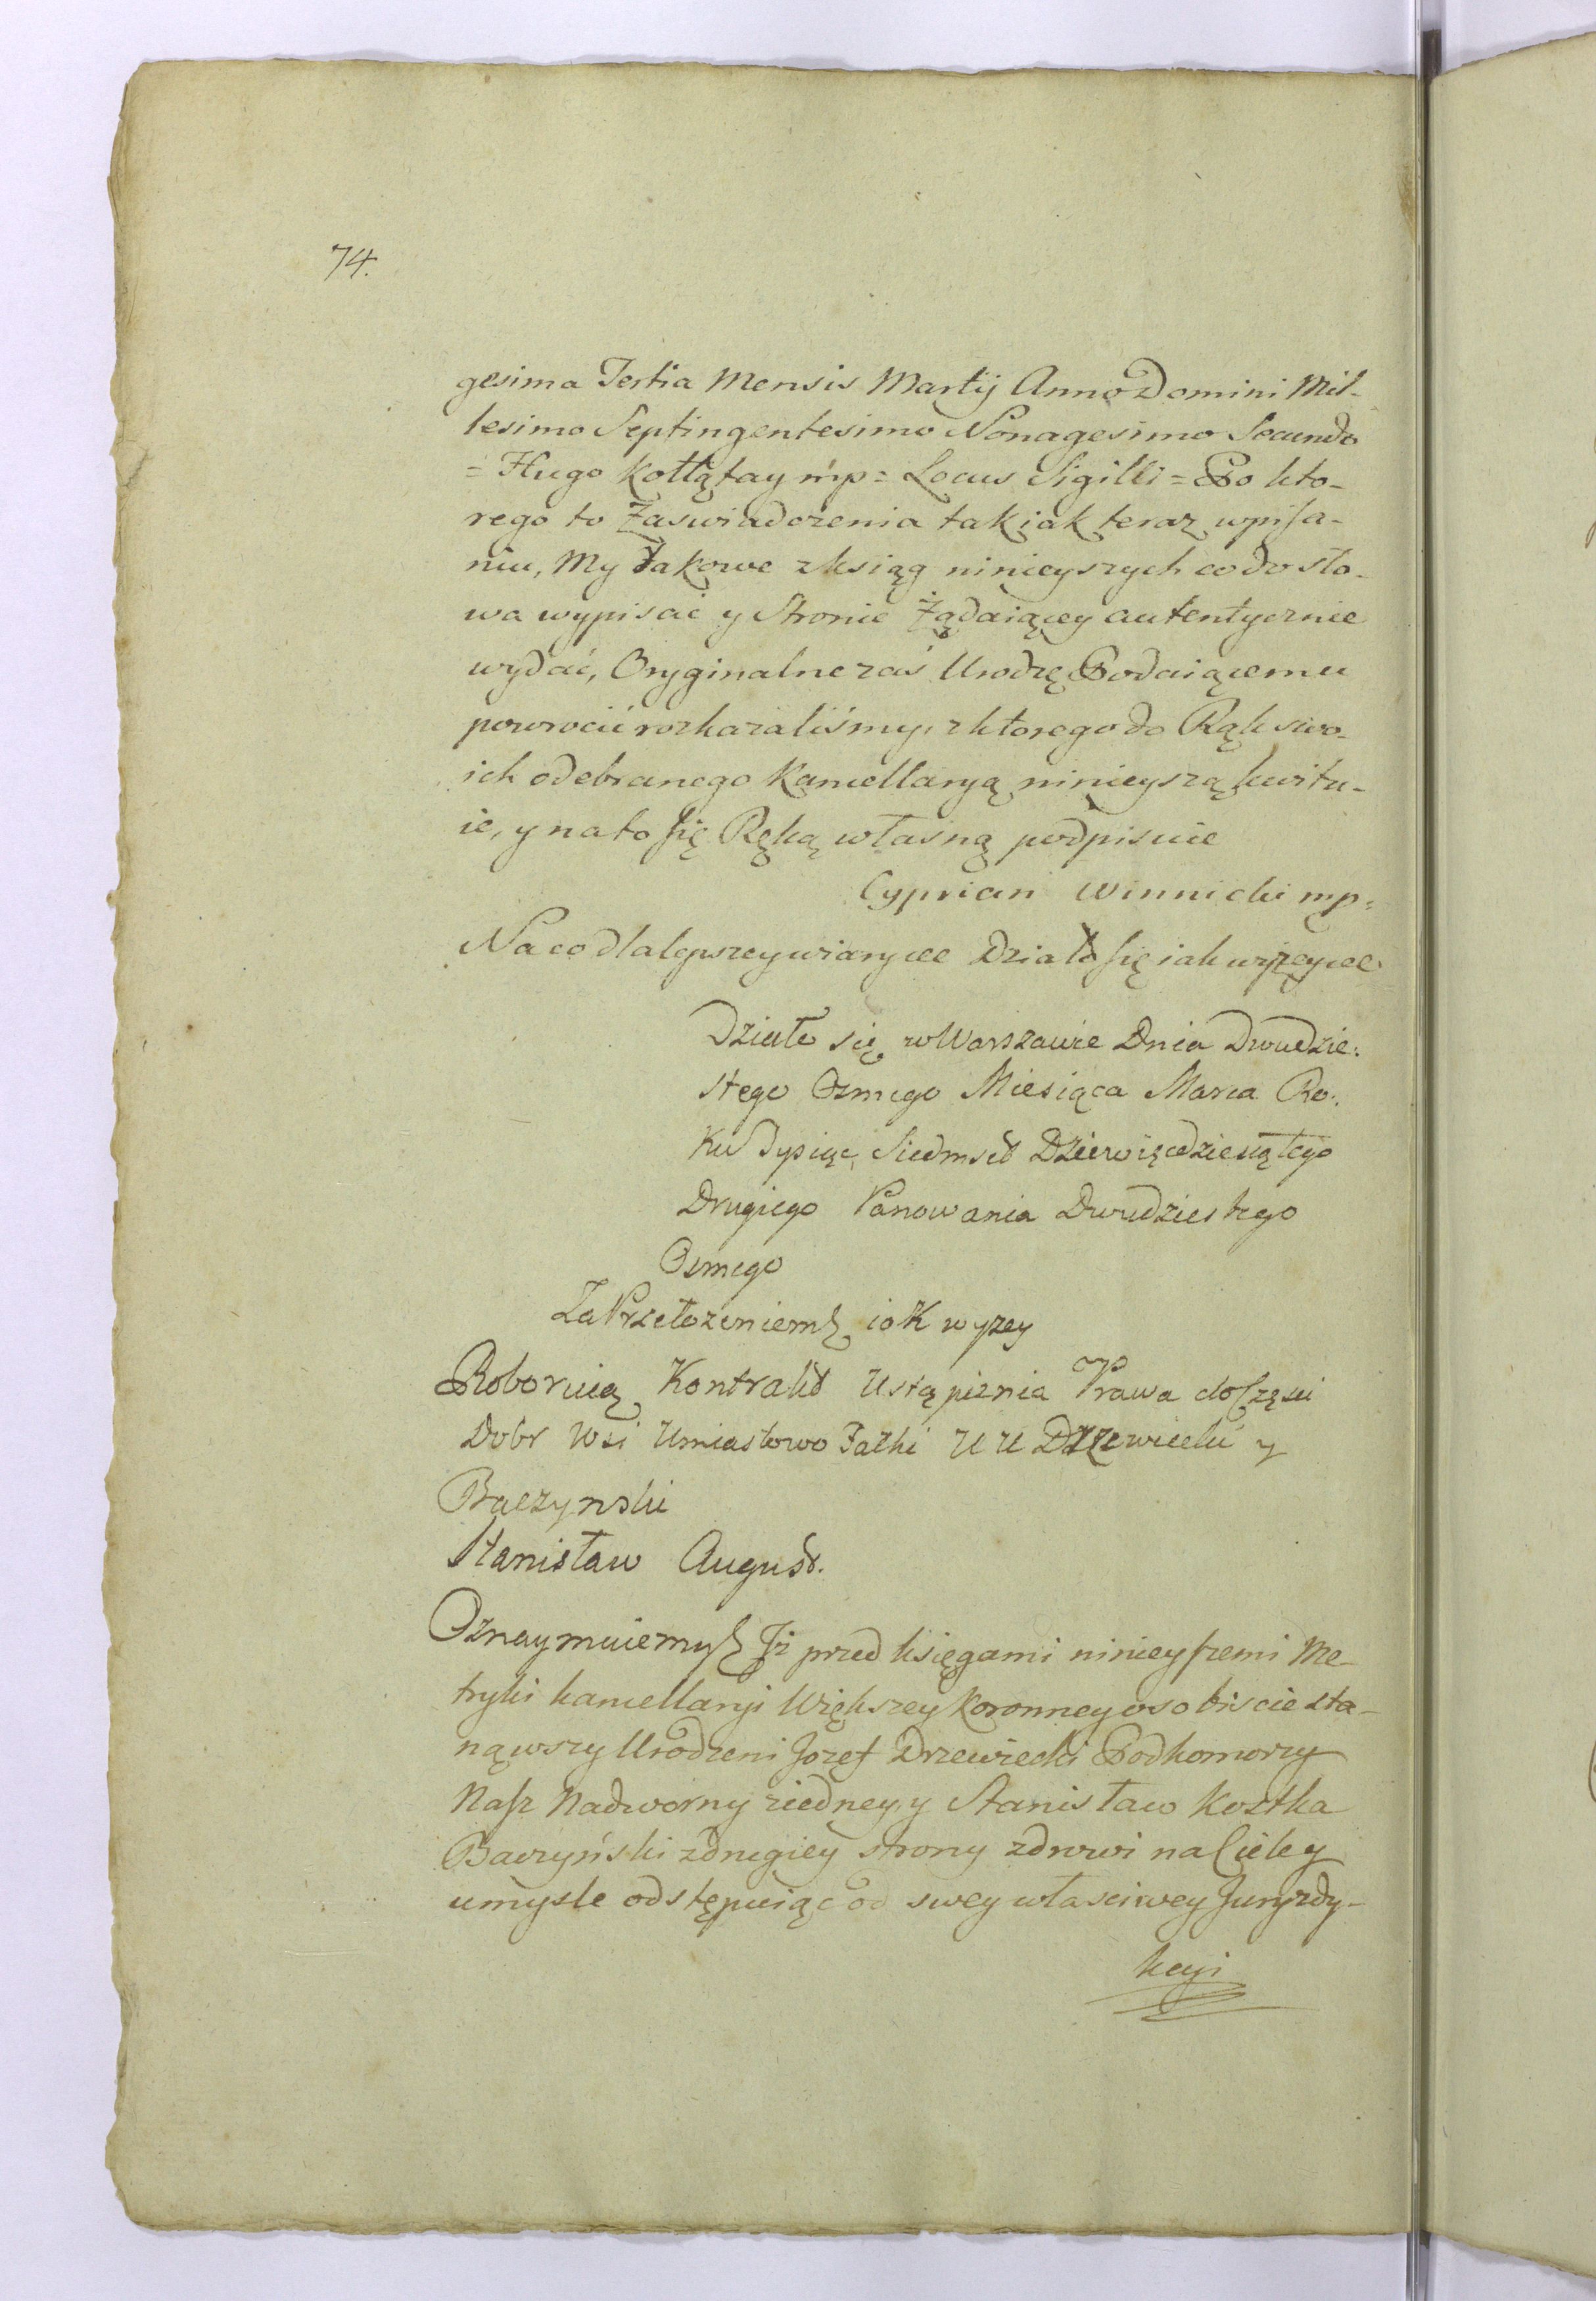 74.
gesima Tertia Mensis Martij Anno Domini Mil-
lesimo Septingentesimo Nonagesimo Secundo
= Hugo Kołłątay mp = Locus Sigilli = Po kto-
rego to Zaswiadczenia tak iak teraz wpisa-
niu, My takowe z ksiąg ninieyszych co do sło-
wa wypisać y Stronie Żądaiącey autentycznie
wydać, Oryginalne zaś Urodzę Podaiącemu
powrocić rozkazaliśmy, z ktorego do Rąk swo-
ich odebranego Kancellaryą ninieyszą kwitu-
ie, y na to się Ręką własną podpisuie
Cyprian Winnicki mp=
Na co dla lepszey wiary ee Działo się iak wyżey ee
Działo się w Warszawie Dnia Dwudzie:
stego Osmego Miesiąca Marca Ro:
ku Tysiąc Siedmset Dziewięcdziesiątego
Drugiego Panowania Dwudziestego
Osmego
Za Przełozeniem iak wyzey
Roboruią Kontrakt Ustąpienia Prawa do Częsci
Dobr Wsi Umiastowo Falki U U Drzewiecki y
Baczynski
Stanisław August.
Oznaymuiemy Iż przed księgami ninieyszemi Me-
tryki kancellaryi Większey Koronney osobiscie sta-
nąwszy Urodzeni Jozef Drzewiecki Podkomorzy
Nasz Nadworny z iedney, y Stanisław Kostka
Baczyński z drugiey strony zdrowi na Ciele y
umysle odstępuiąc od swey własciwey Juryzdy-
kcyi